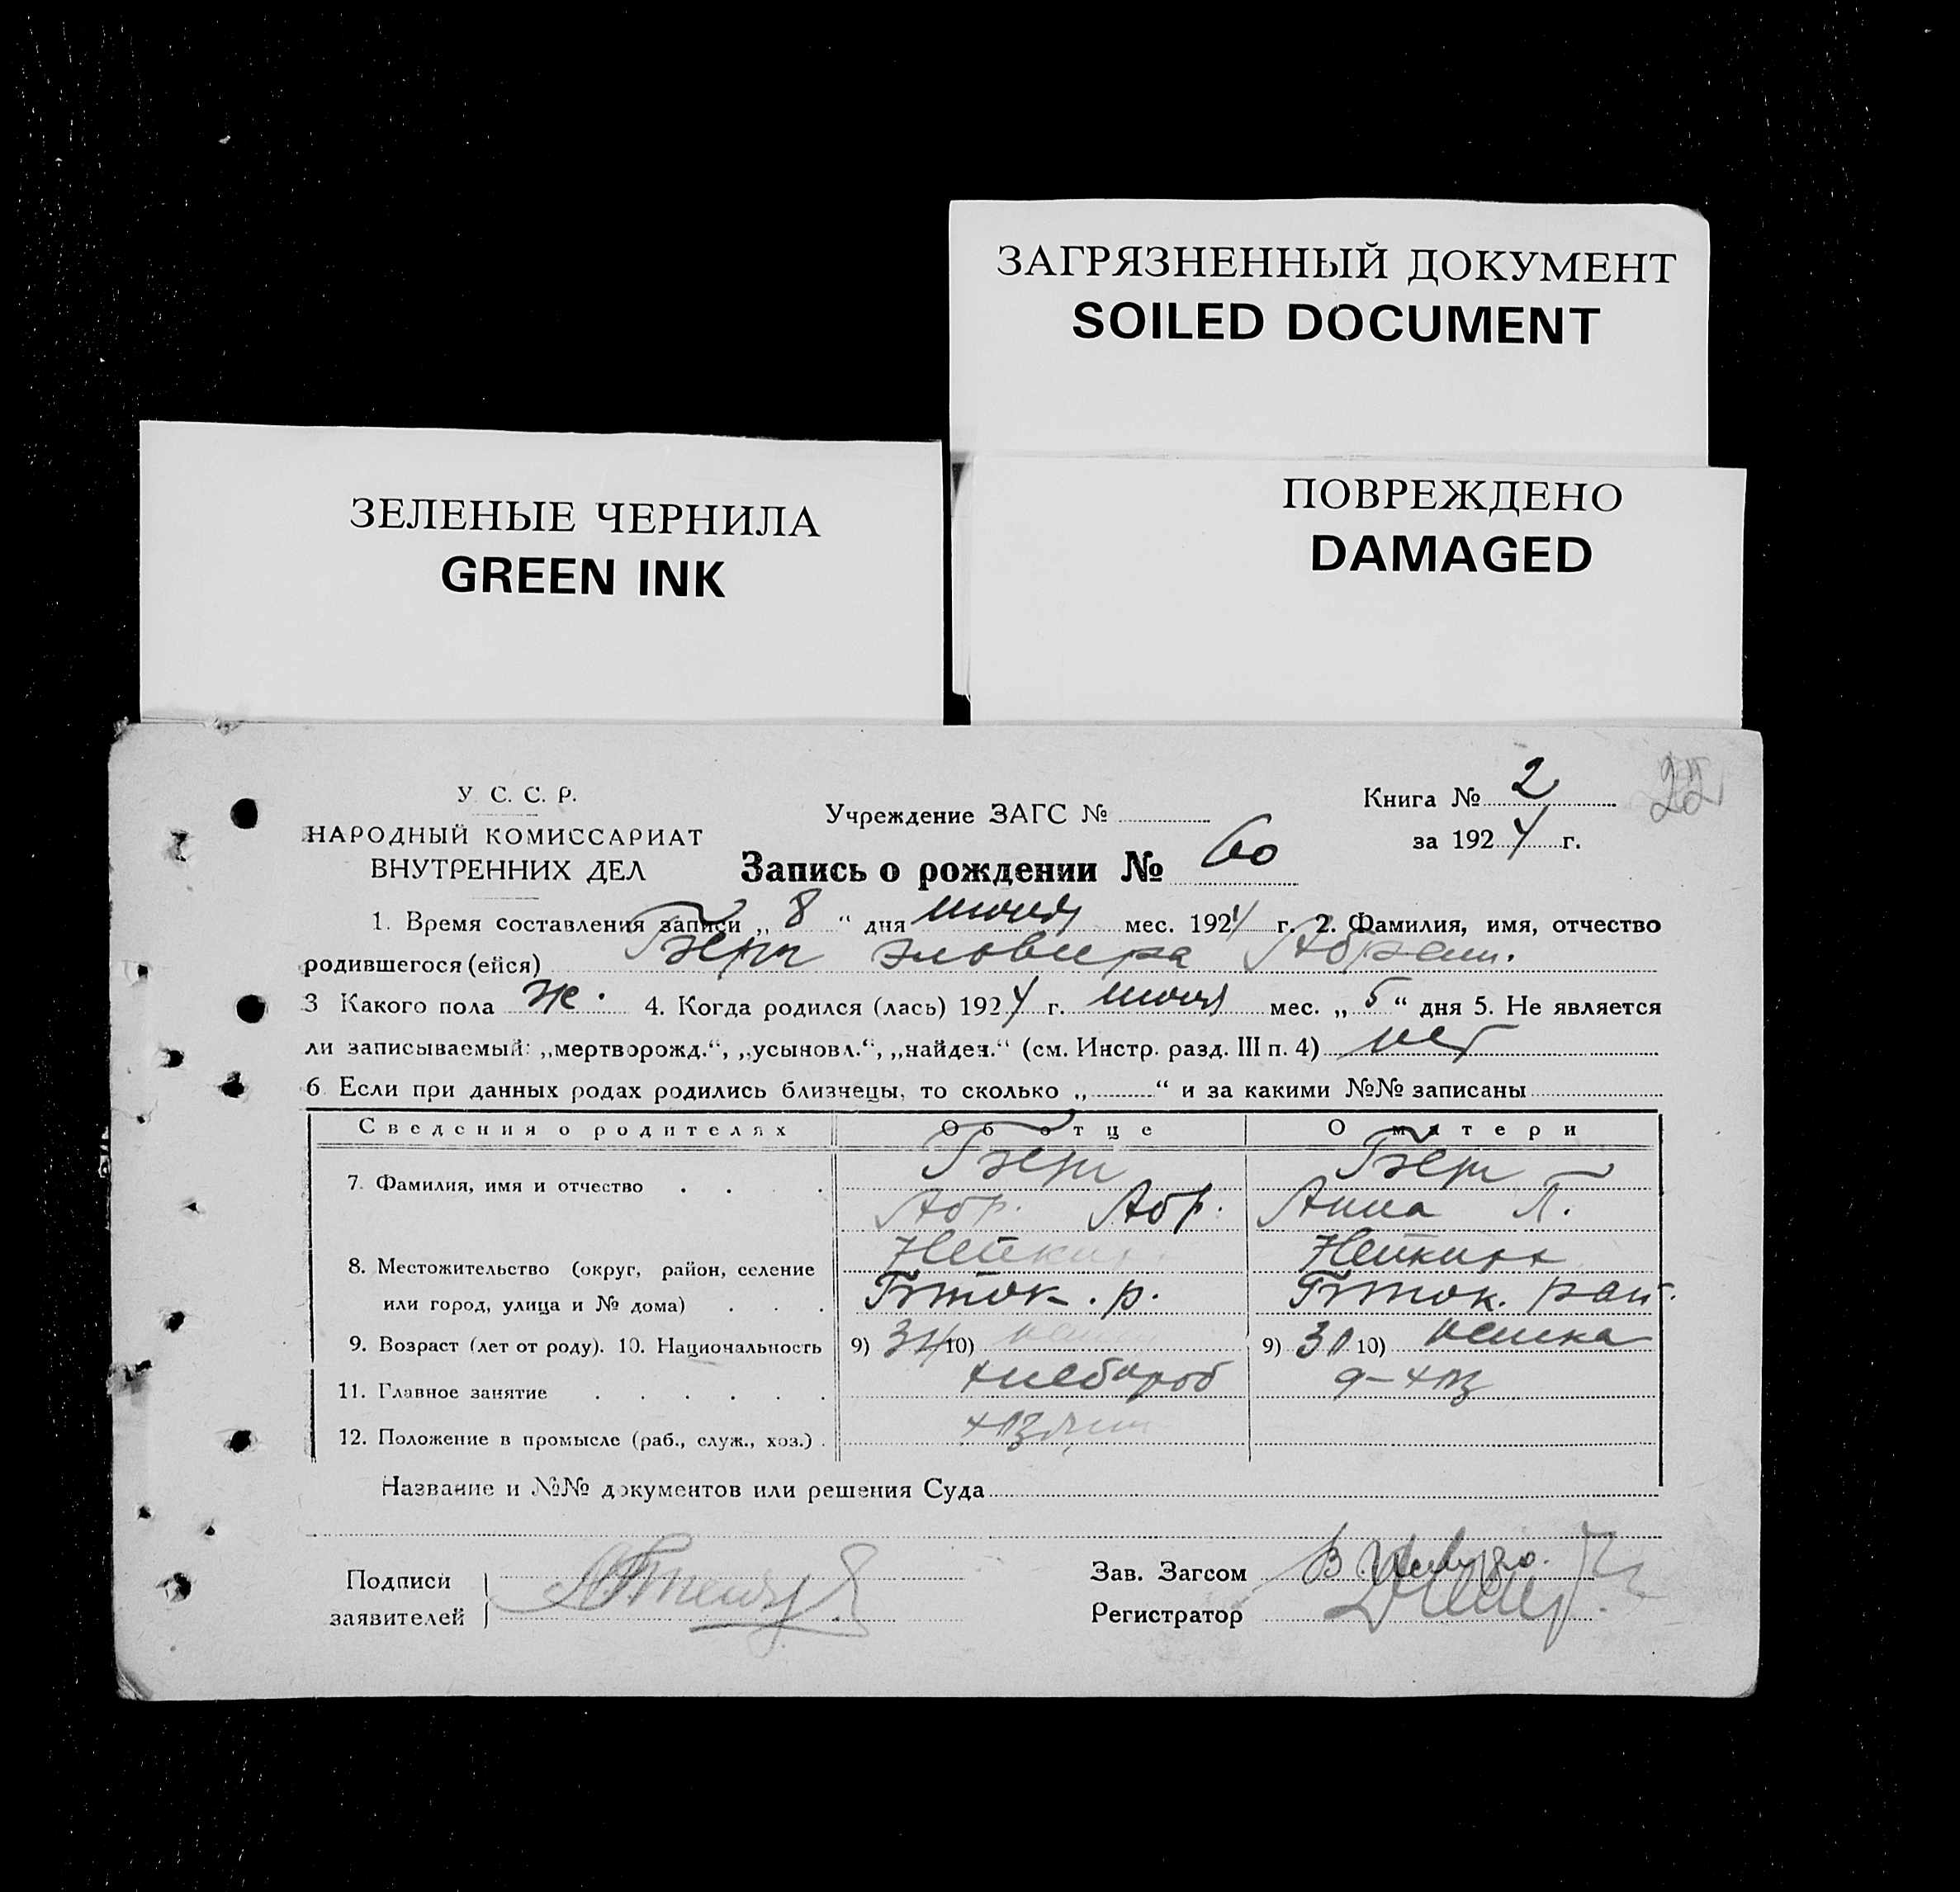 ЗАГРЯЗНЕННЫЙ ДОКУМЕНТ
SOILED DOCUMENT
ЗЕЛЕНЫЕ ЧЕРНИЛА
GREEN INK
ПОВРЕЖДЕНО
DAMAGED
У. С. С. Р.
НАРОДНЫЙ КОМИССАРИАТ
ВНУТРЕННИХ ДЕЛ
Учреждение ЗАГС №
Запись о рождении № 60
Книга № 2
за 1924 г.
1. Время составления записи „ 8 “ дня июня мес. 1924 г. 2. Фамилия, имя, отчество
родившегося (ейся) Эльвира Абрам.
3 Какого пола ж. 4. Когда родился (лась) 1924 г. июня мес. „ 5 “ дня 5. Не является
ли записываемый: „мертворожд.“, „усыновл.“, „найден.“ (см. Инстр. разд. III п. 4) нет
6. Если при данных родах родились близнецы, то сколько „ “ и за какими №№ записаны
Сведения о родителях Об отце О матери
7. Фамилия, имя и отчество
Абр. Абр. Анна П.
8. Местожительство (округ, район, селение
или город, улица и № дома)
9. Возраст (лет от роду). 10. Национальность 9) 34 10) 9) 30 10) немка
11. Главное занятие хлебороб
12. Положение в промысле (раб., служ., хоз.)
Название и №№ документов или решения Суда
Подписи
заявителей
Зав. Загсом
Регистратор